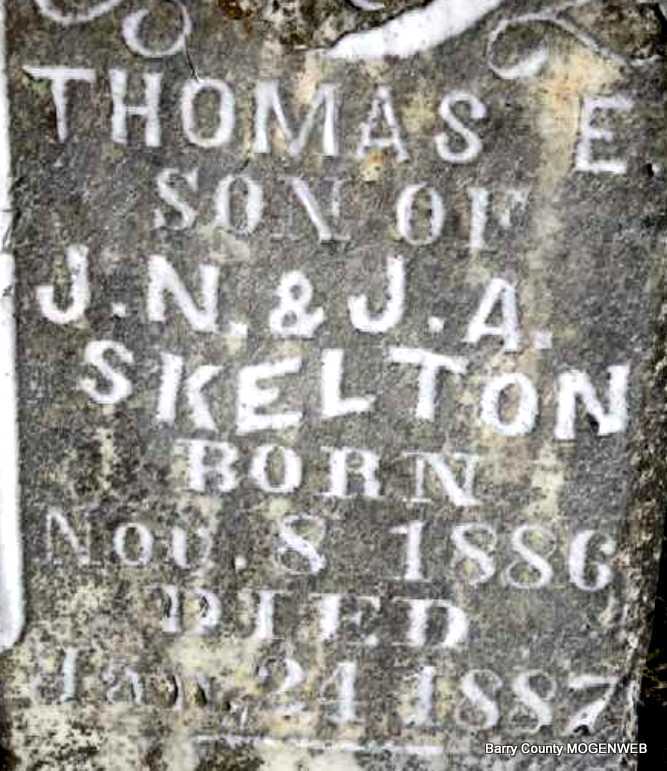 THOMAS E
SON OF
J.N. & J.A.
SKELTON
BORN
Nov. 8 1886
DIED
Jan. 24 1887
Barry County MOGENWEB